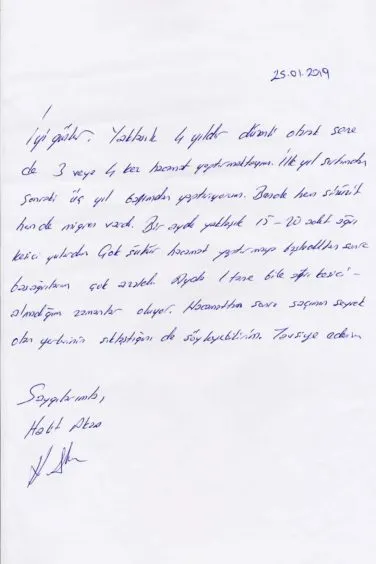 25.01.2019
İyi günler. Yaklaşık 4 yıldır düzenli olarak sene
de 3 veya 4 kez hacamat yaptırmaktayım. İlk yıl sırtımdan
sonraki üç yıl başımdan yaptırıyorum. Bende hem sinüzit
hemde migren vardı. Bir ayda yaklaşık 15-20 adet ağrı
kesici yutardım Çok şükür hacamat yaptırmaya başladıktan sonra
başağrılarım çok azaldı. Ayda 1 tane bile ağrı kesici
almadığım zamanlar oluyor. Hacamattan sonra saçımın seyrek
olan yerlerinin sıklaştığını da söyleyebilirim. Tavsiye ederim
Saygılarımla,
Halit